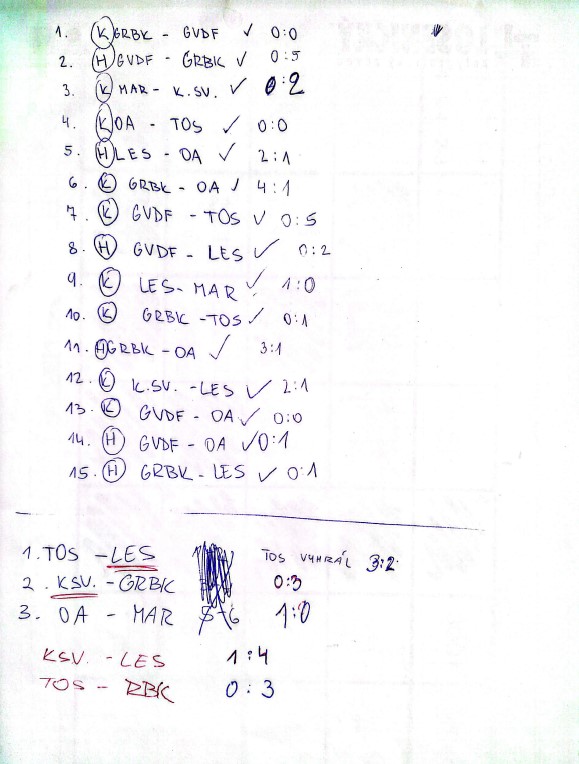 1. K GRBK - GVDF ✓ 0:0
2. H GVDF - GRBK ✓ 0:5
3. K MAR - K.SV. ✓ 0:2
4. K OA - TOS ✓ 0:0
5. H LES - OA ✓ 2:1
6. K GRBK - OA ✓ 4:1
7. K GVDF - TOS ✓ 0:5
8. H GVDF - LES ✓ 0:2
9. K LES - MAR ✓ 1:0
10. K GRBK - TOS ✓ 0:1
11. H GRBK - OA ✓ 3:1
12. K K.SV. - LES ✓ 2:1
13. K GVDF - OA ✓ 0:0
14. H GVDF - OA ✓ 0:1
15. H GRBK - LES ✓ 0:1
1. TOS - LES TOS VYHRÁL 3:2
2. KSV. - GRBK 0:3
3. OA - MAR 1:0
KSV. - LES 1:4
TOS - RBK 0:3